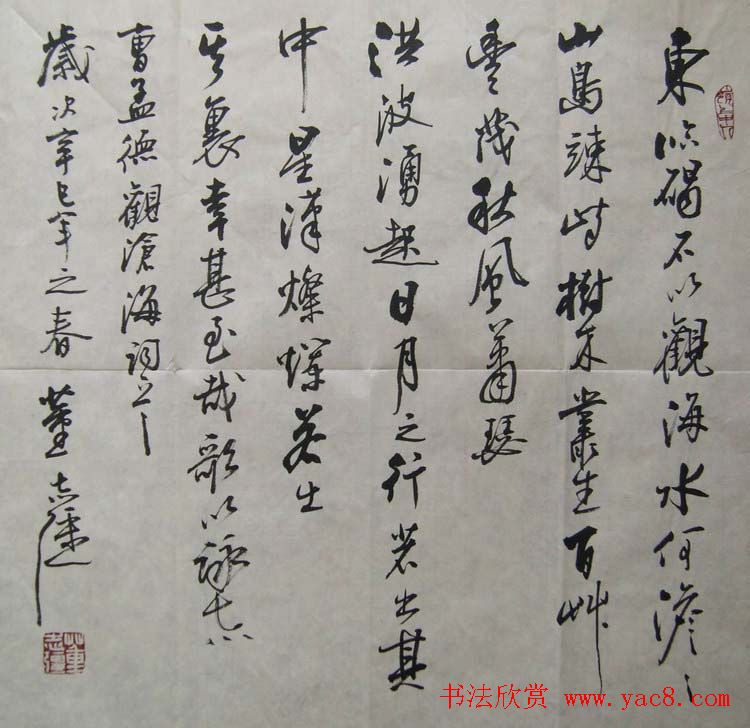 東臨碣石以觀海水何澹〻
山島竦峙樹木叢生百艸
豐茂秋風蕭瑟
洪波湧起日月之行若出其
中星漢燦爛若出
其裏幸甚至哉歌以詠志
曹孟德觀滄海詞
歲次辛巳年之春 董志
书法欣赏 www.yac8.com